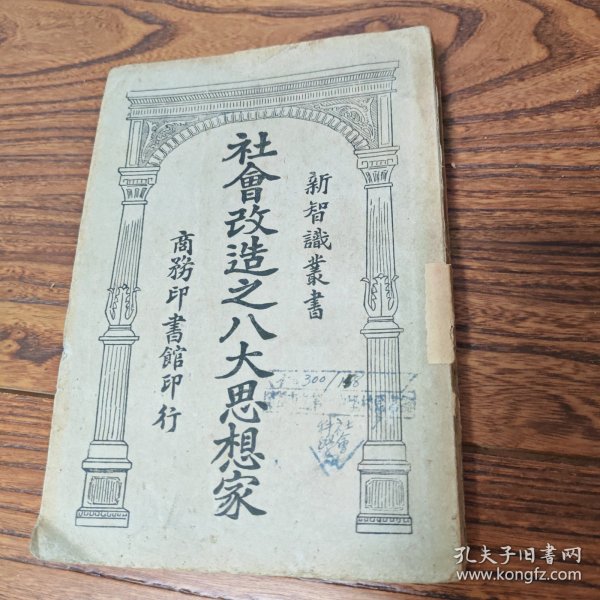 新智識叢書
社會改造之八大思想家
商務印書館印行
300/158
孔夫子旧書网
www.kongfz.com